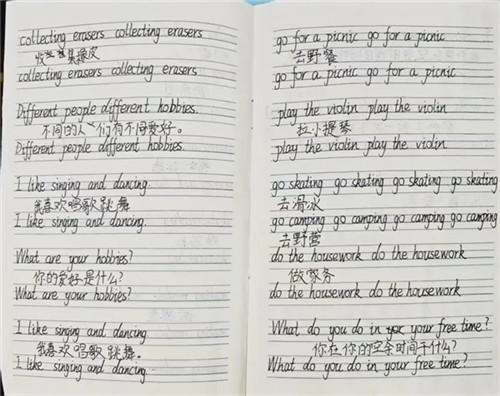 collecting erasers collecting erasers
收集橡皮
collecting erasers collecting erasers
Different people different hobbies.
不同的人们有不同爱好。
Different people different hobbies.
I like singing and dancing.
我喜欢唱歌跳舞
I like singing and dancing.
What are your hobbies?
你的爱好是什么?
What are your hobbies?
I like singing and dancing
我喜欢唱歌跳舞。
I like singing and dancing
go for a picnic go for a picnic
去野餐
go for a picnic go for a picnic
play the violin play the violin
拉小提琴
play the violin play the violin
go skating go skating go skating go skating
去滑冰
go camping go camping go camping go camping
去野营
do the housework do the housework
做家务
do the housework do the housework
What do you do in your free time?
你在你的空余时间干什么?
What do you do in your free time?